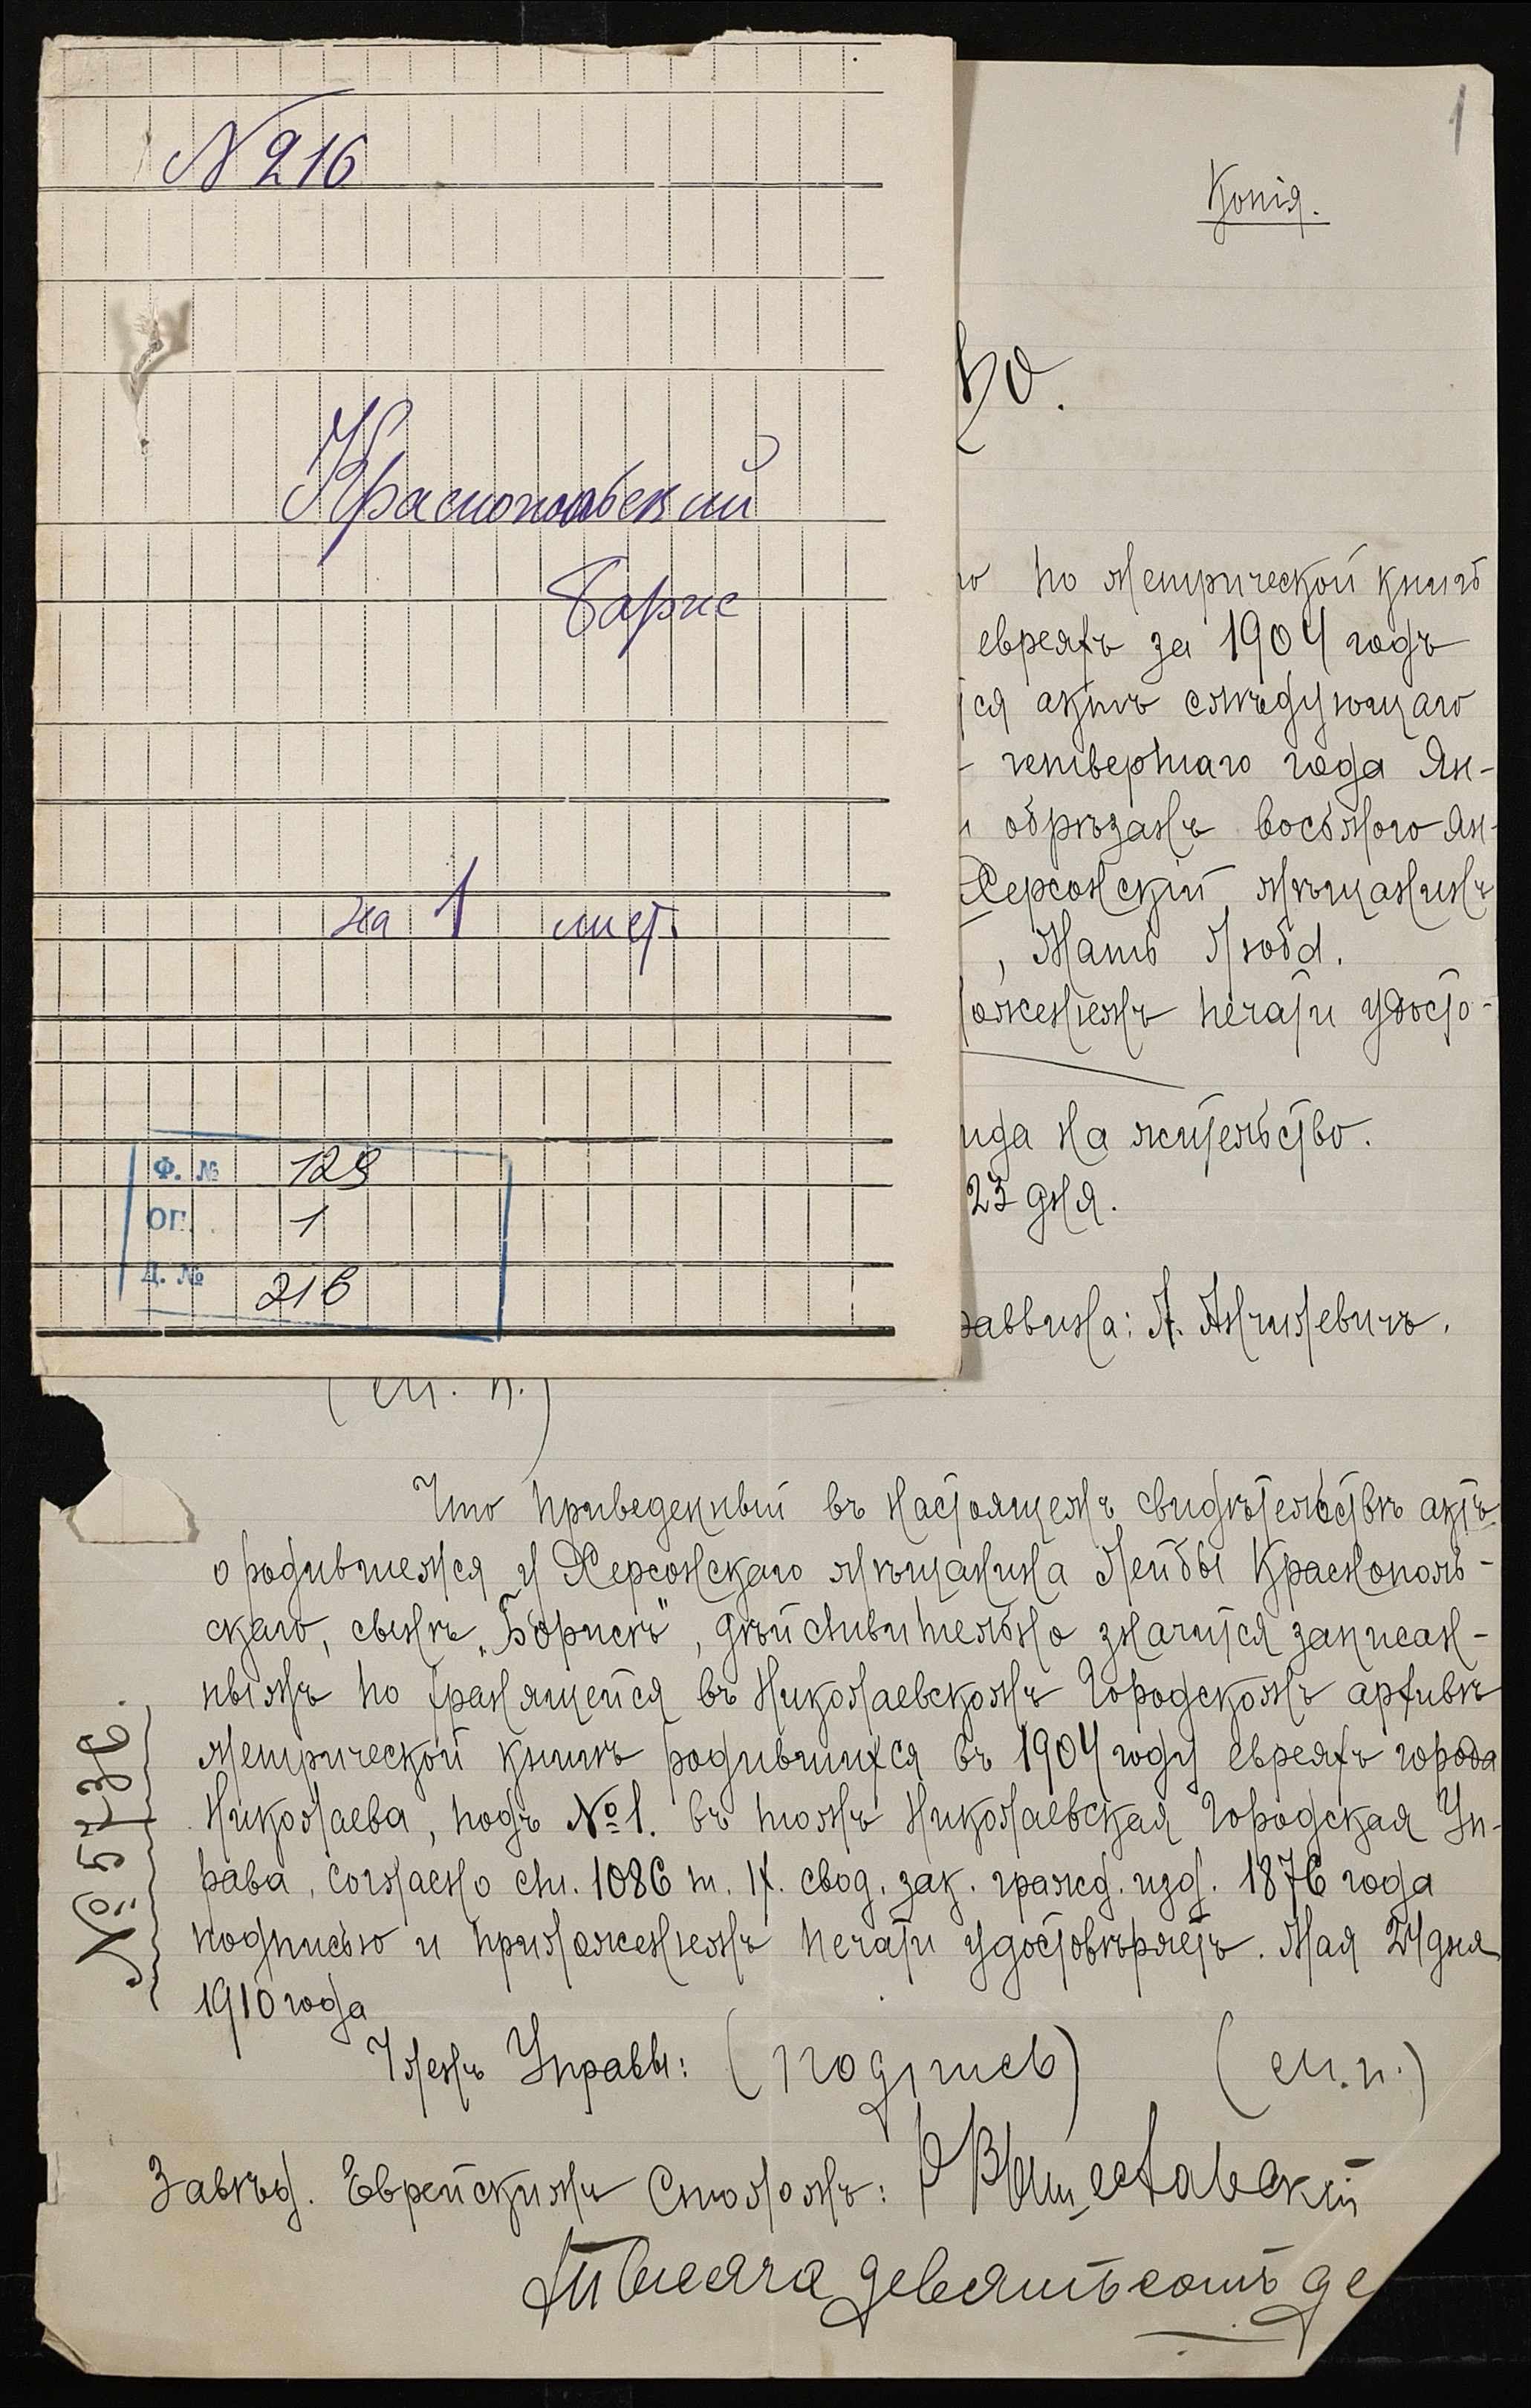 N 216
Краснопольский
Барис
на 1 лист.
Ф. № 129
ОП. 1
Д. № 216
1
Копія.
во.
по метрической книгѣ
евреяхъ за 1904 годъ
ся актъ слѣдующаго
четвертаго года Ян-
обрѣзанъ восьмого Ян-
Херсонскій мѣщанинъ
, Мать Люба.
ложеніемъ печати удосто-
ида на жительство.
23 дня.
раввина: А. Анчилевичъ.
(М. П.)
Что приведенный въ настоящемъ свидѣтельствѣ актъ
о родившемся у Херсонскаго мѣщанина Лейбы Краснополь-
скаго, сынѣ „Борисѣ", дѣйствительно значится записан-
нымъ по хранящейся въ Николаевскомъ Городскомъ архивѣ
метрической книгѣ родившихся въ 1904 году евреяхъ города
Николаева, подъ №1. въ томъ Николаевская Городская Уп-
рава, согласно ст. 1086 т. IX. свод. зак. гражд. изд. 1876 года
подписью и приложеніемъ печати удостовѣряетъ. Мая 24 дня
1910 года
№ 5736.
Членъ Управы: (подпись) (М. П.)
Завѣд. Еврейскимъ Столомъ:
Тысяча девятьсотъ де